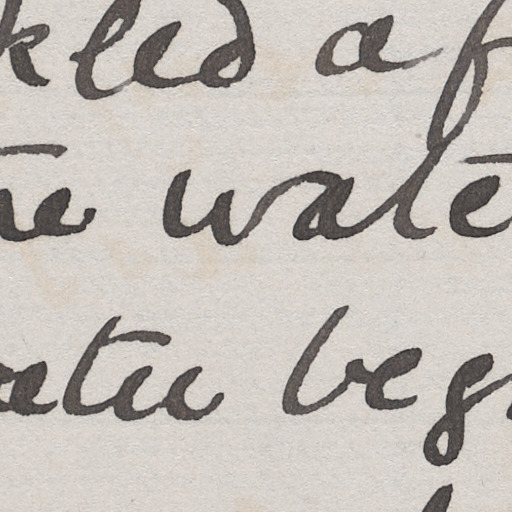 kled a f
he wate
ater beg